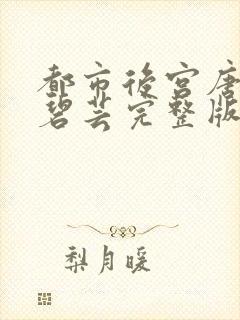 都市后宫唐
碧芸完整版
梨月暖